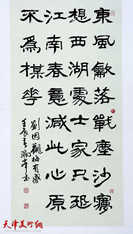 東風龡落戰塵沙夢
想西湖處士家只恐
江南春意減此心原
不為楳花
劉因觀梅有感
天津美术网